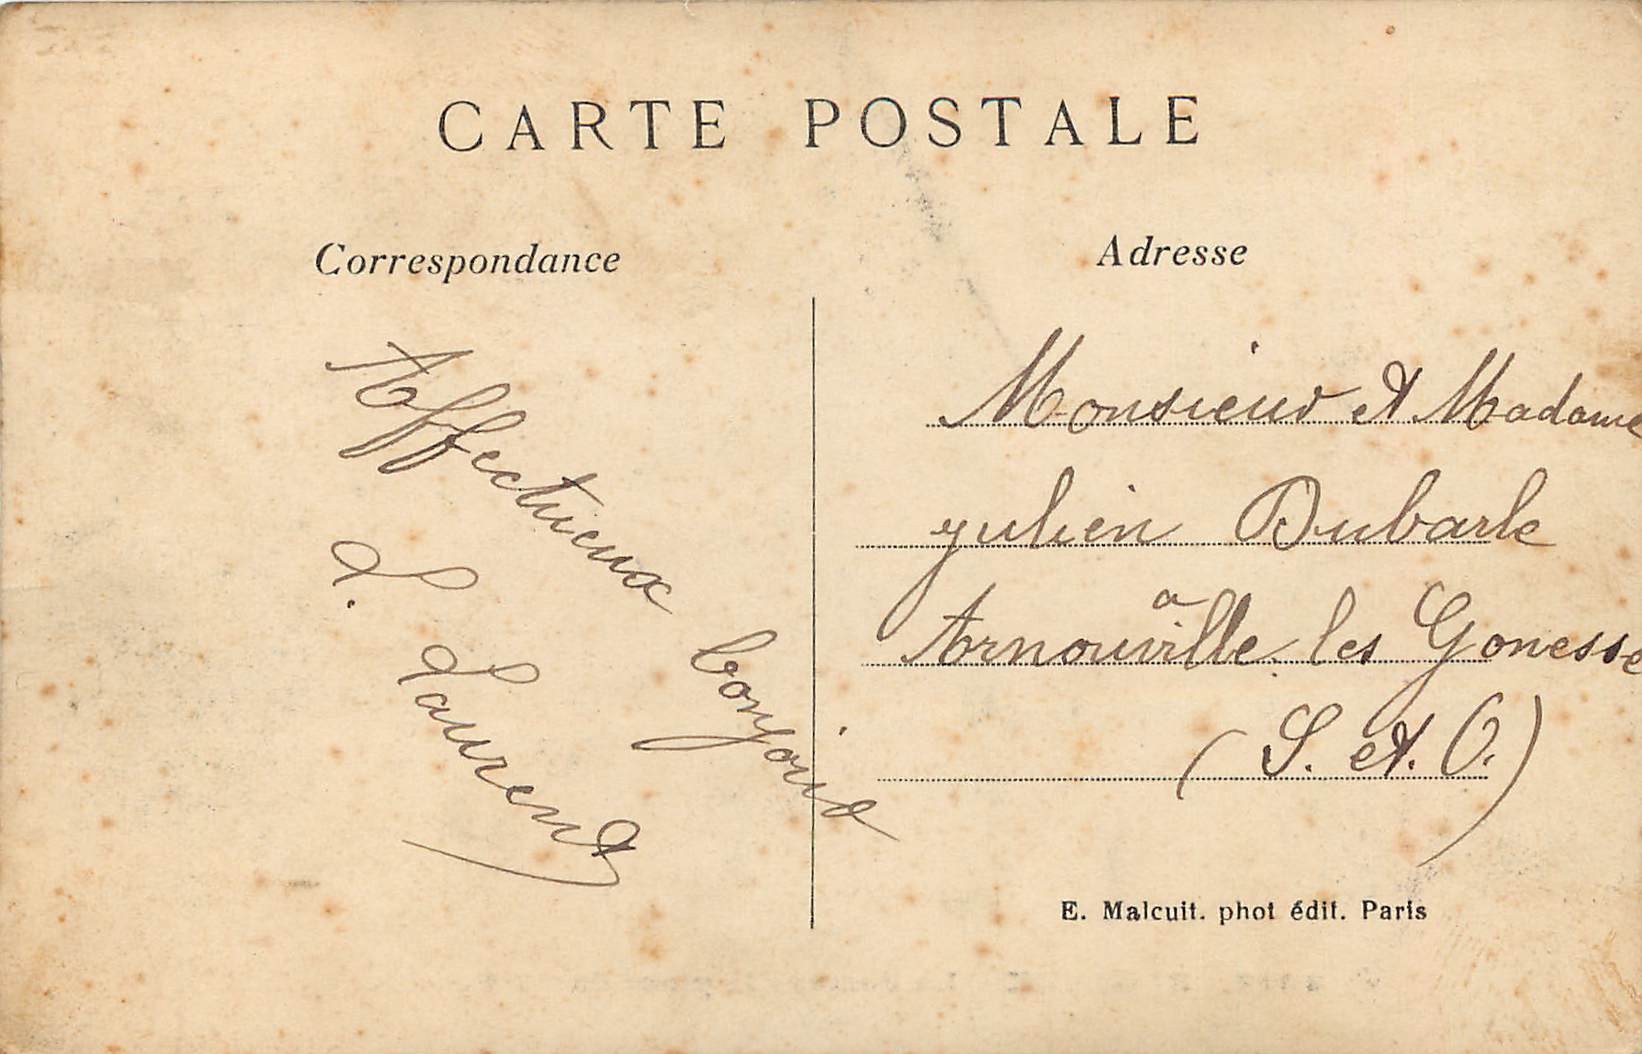 CARTE POSTALE
Correspondance
Affectueux bonjour
L. Laurent
Adresse
Monsieur et Madame
Julien Dubarle
a
Arnouville les Gonesse
(S. et. O.)
E. Malcuit. phot édit. Paris